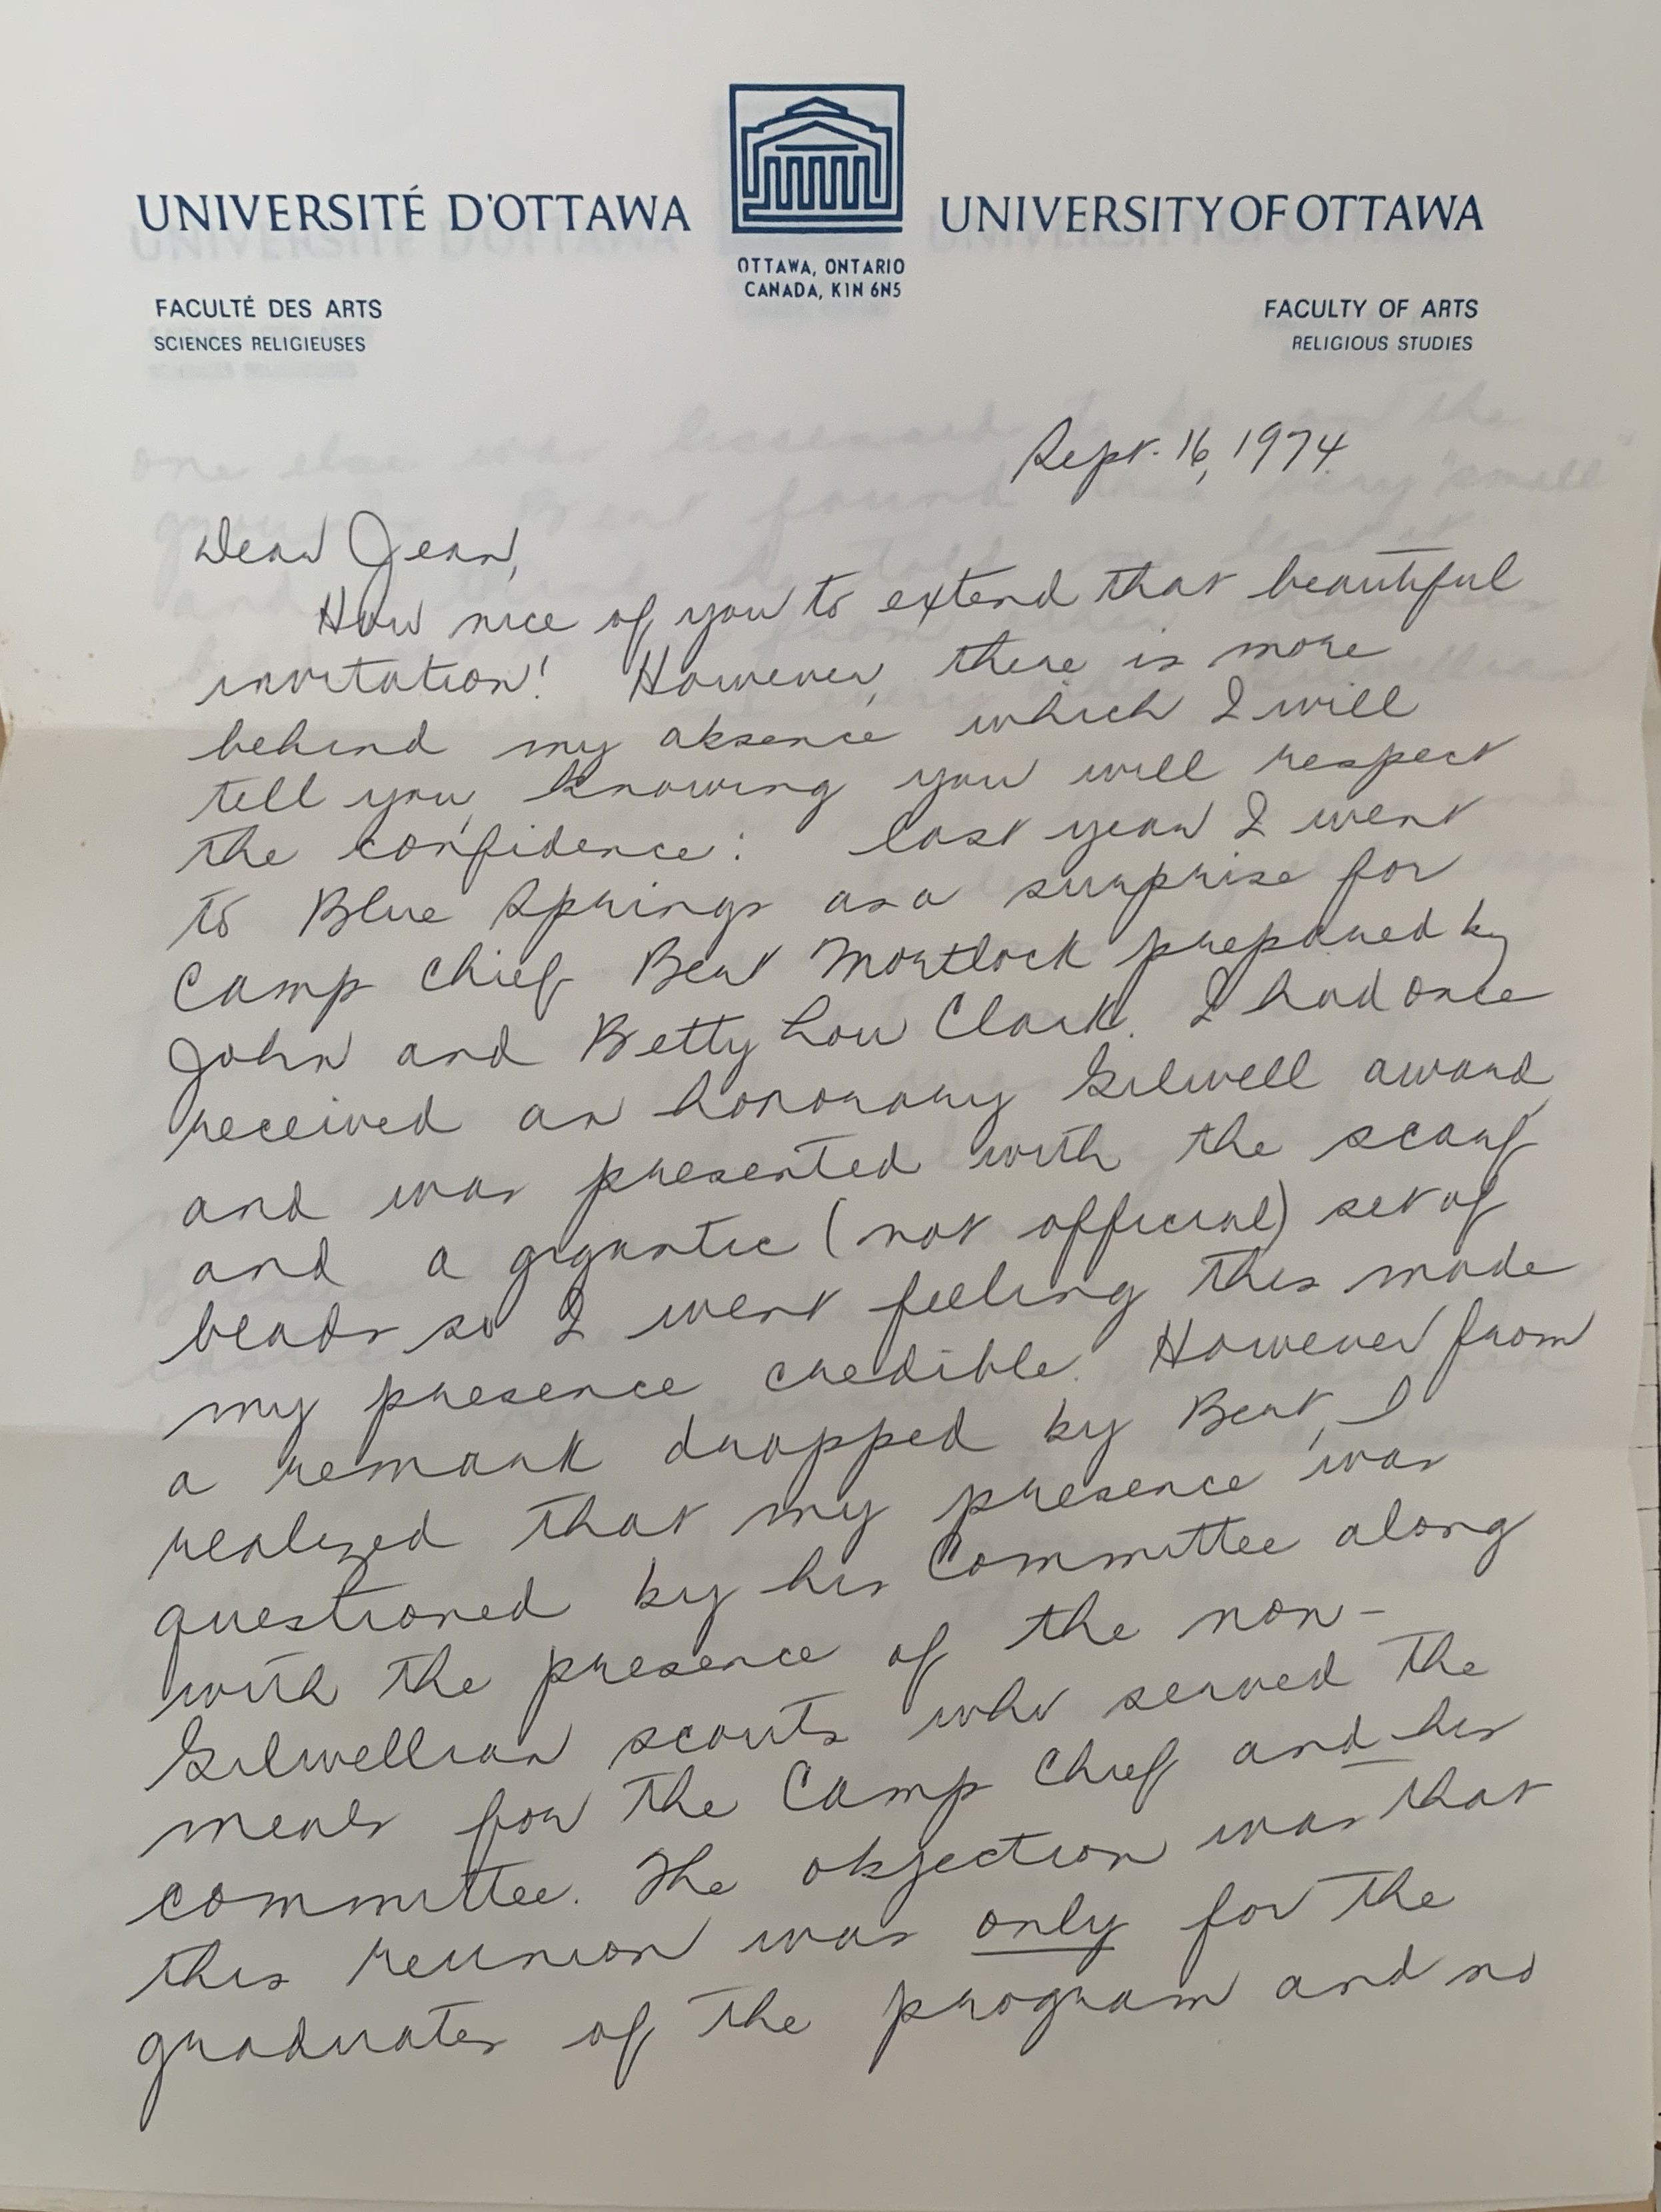 UNIVERSITÉ D'OTTAWA
UNIVERSITY OF OTTAWA
OTTAWA, ONTARIO
CANADA, K1N 6N5
FACULTÉ DES ARTS
SCIENCES RELIGIEUSES
FACULTY OF ARTS
RELIGIOUS STUDIES
Sept. 16, 1974
Dear Jean,
How nice of you to extend that beautiful
invitation! However, there is more
behind my absence which I will
tell you, knowing you will respect
the confidence: last year I went
to Blue Springs as a surprise for
Camp Chief Bert Mortlock prepared by
John and Betty Lou Clark. I had once
received an honorary Gilwell award
and was presented with the scarf
and a gigantic (not official) set of
beads so I went feeling this made
my presence credible. However from
a remark dropped by Bert, I
realized that my presence was
questioned by his Committee along
with the presence of the non-
Gilwellian scouts who served the
meals for the Camp Chief and his
committee. The objection was that
this reunion was only for the
graduates of the program and no